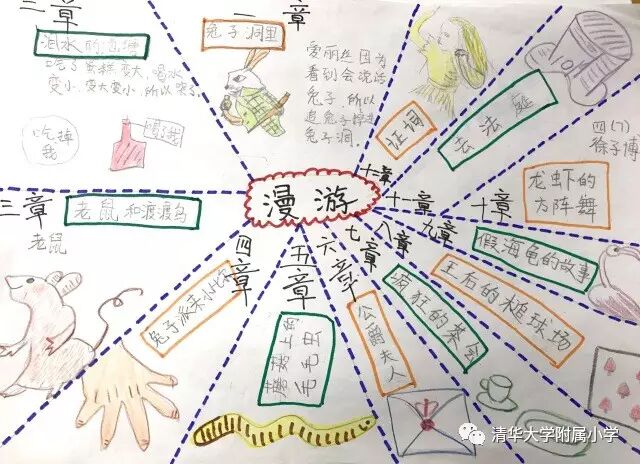 漫游
一章
兔子洞里
爱丽丝因为
看到会说话
兔子,所以
追兔子掉进
兔子洞。
二章
泪水的池塘
吃了蛋糕变大,喝水
变小,变大变小,所以哭了。
吃掉
我
喝了我
三章
老鼠和渡渡鸟
老鼠
四章
兔子派来小比尔
五章
蘑菇上的
毛毛虫
六章
公爵夫人
七章
疯狂的茶会
八章
王后的槌球场
九章
假海龟的故事
十章
龙虾的
方阵舞
十一章
去法庭
十二章
证词
四(7)
徐子博
清华大学附属小学